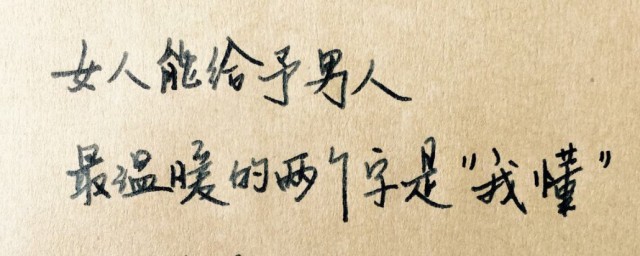 女人能给予男人
最温暖的两个字是"我懂"